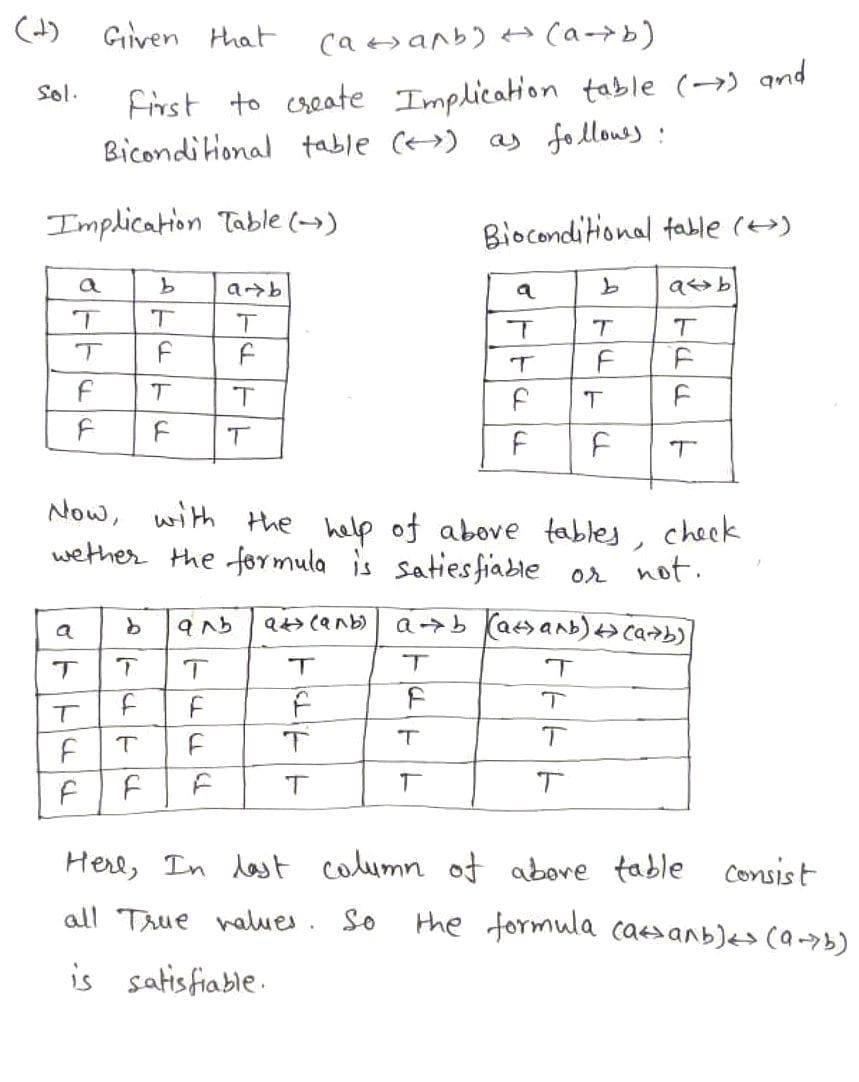 (d) Given that (a ↔ a∧b) ↔ (a→b)
Sol. First to create Implication table (→) and
Biconditional table (↔) as follows :
Implication Table (→)
a b a→b
T T T
T F F
F T T
F F T
Bioconditional table (↔)
a b a↔b
T T T
T F F
F T F
F F T
Now, with the help of above tables, check
wether the formula is satiesfiable or not.
a b a∧b a↔(a∧b) a→b (a↔a∧b)↔(a→b)
T T T T T T
T F F F F T
F T F T T T
F F F T T T
Here, In last column of above table consist
all True values. So the formula (a↔a∧b)↔(a→b)
is satisfiable.